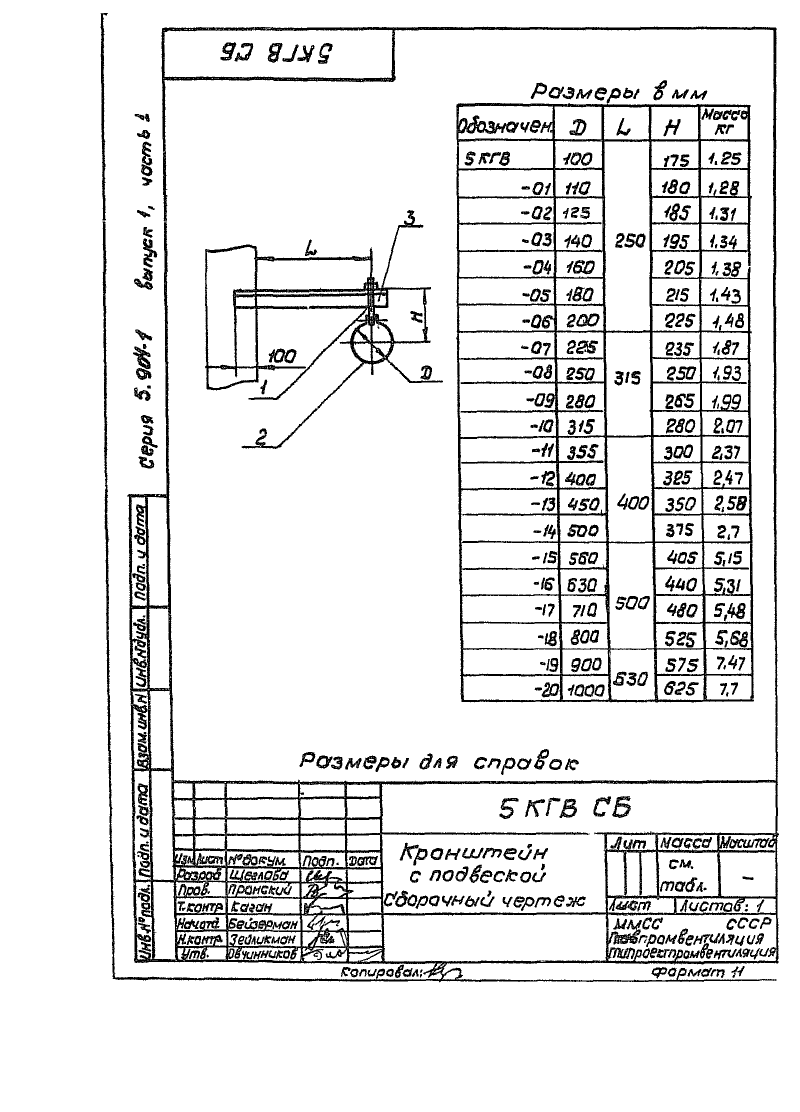 5 КГВ СБ
Серия 5.904-1 выпуск 1, часть 1
Размеры в мм
Обозначен. D L H Масса кг
5 КГВ 100 250 175 1.25
-01 110 180 1,28
-02 125 185 1.31
-03 140 195 1.34
-04 160 205 1,38
-05 180 215 1.43
-06 200 225 1,48
-07 225 315 235 1,87
-08 250 250 1,93
-09 280 265 1,99
-10 315 280 2,07
-11 355 400 300 2,37
-12 400 325 2,47
-13 450 350 2,58
-14 500 375 2,7
-15 560 500 405 5,15
-16 630 440 5,31
-17 710 480 5,48
-18 800 525 5,68
-19 900 630 575 7.47
-20 1000 625 7,7
L
3
H
100
D
1
2
Размеры для справок
5 КГВ СБ
Изм Лист № докум. Подп. Дата
Разраб Щеглова
Пров. Пронский
Т.контр Каган
Начотд Бейзерман
Н.контр Зейликман
Утв. Овчинников
Кронштейн
с подвеской
Сборочный чертеж
Лит Масса Масштаб
см. табл. –
Лист Листов: 1
ММСС СССР
Главпромвентиляция
ГПИПроектпромвентиляция
Инв.№ подл. Подп. и дата Взам.инв.№ Инв.№дубл. Подп. и дата
Копировал:
Формат 11